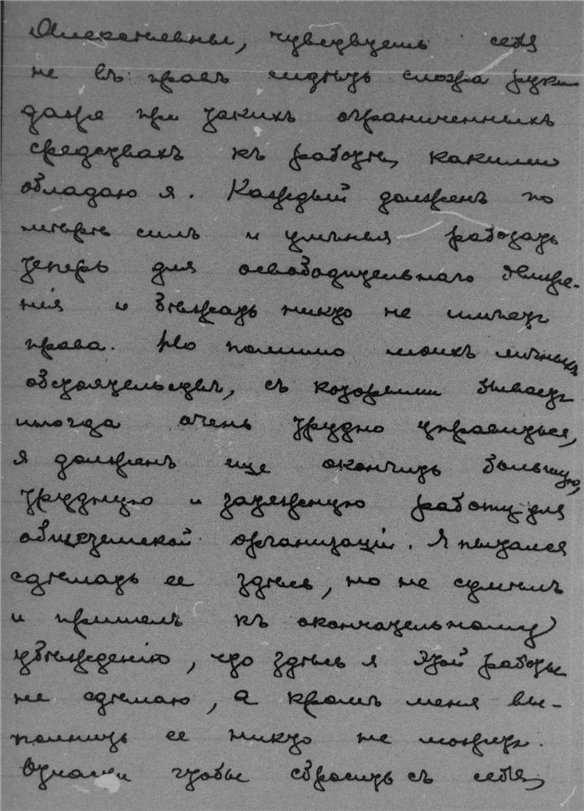 Алексѣевны, чувствуешь себя
не въ правѣ сидѣть сложа руки
даже при такихъ ограниченныхъ
средствахъ къ работѣ, какими
обладаю я. Каждый долженъ по
мѣрѣ силъ и умѣнья работать
теперь для освободительнаго движе-
нія и бѣжать никто не имѣетъ
права. Но помимо моихъ личныхъ
обстоятельствъ, съ которыми бываетъ
иногда очень трудно управиться,
я долженъ еще окончить большую,
трудную и затяжную работу для
общеземской организаціи. Я пытался
сдѣлать ее здѣсь, но не сумѣлъ
и пришелъ къ окончательному
убѣжденію, что здѣсь я этой работы
не сдѣлаю, а кромѣ меня вы-
полнить ее никто не можетъ.
чтобы сбросить съ себя,